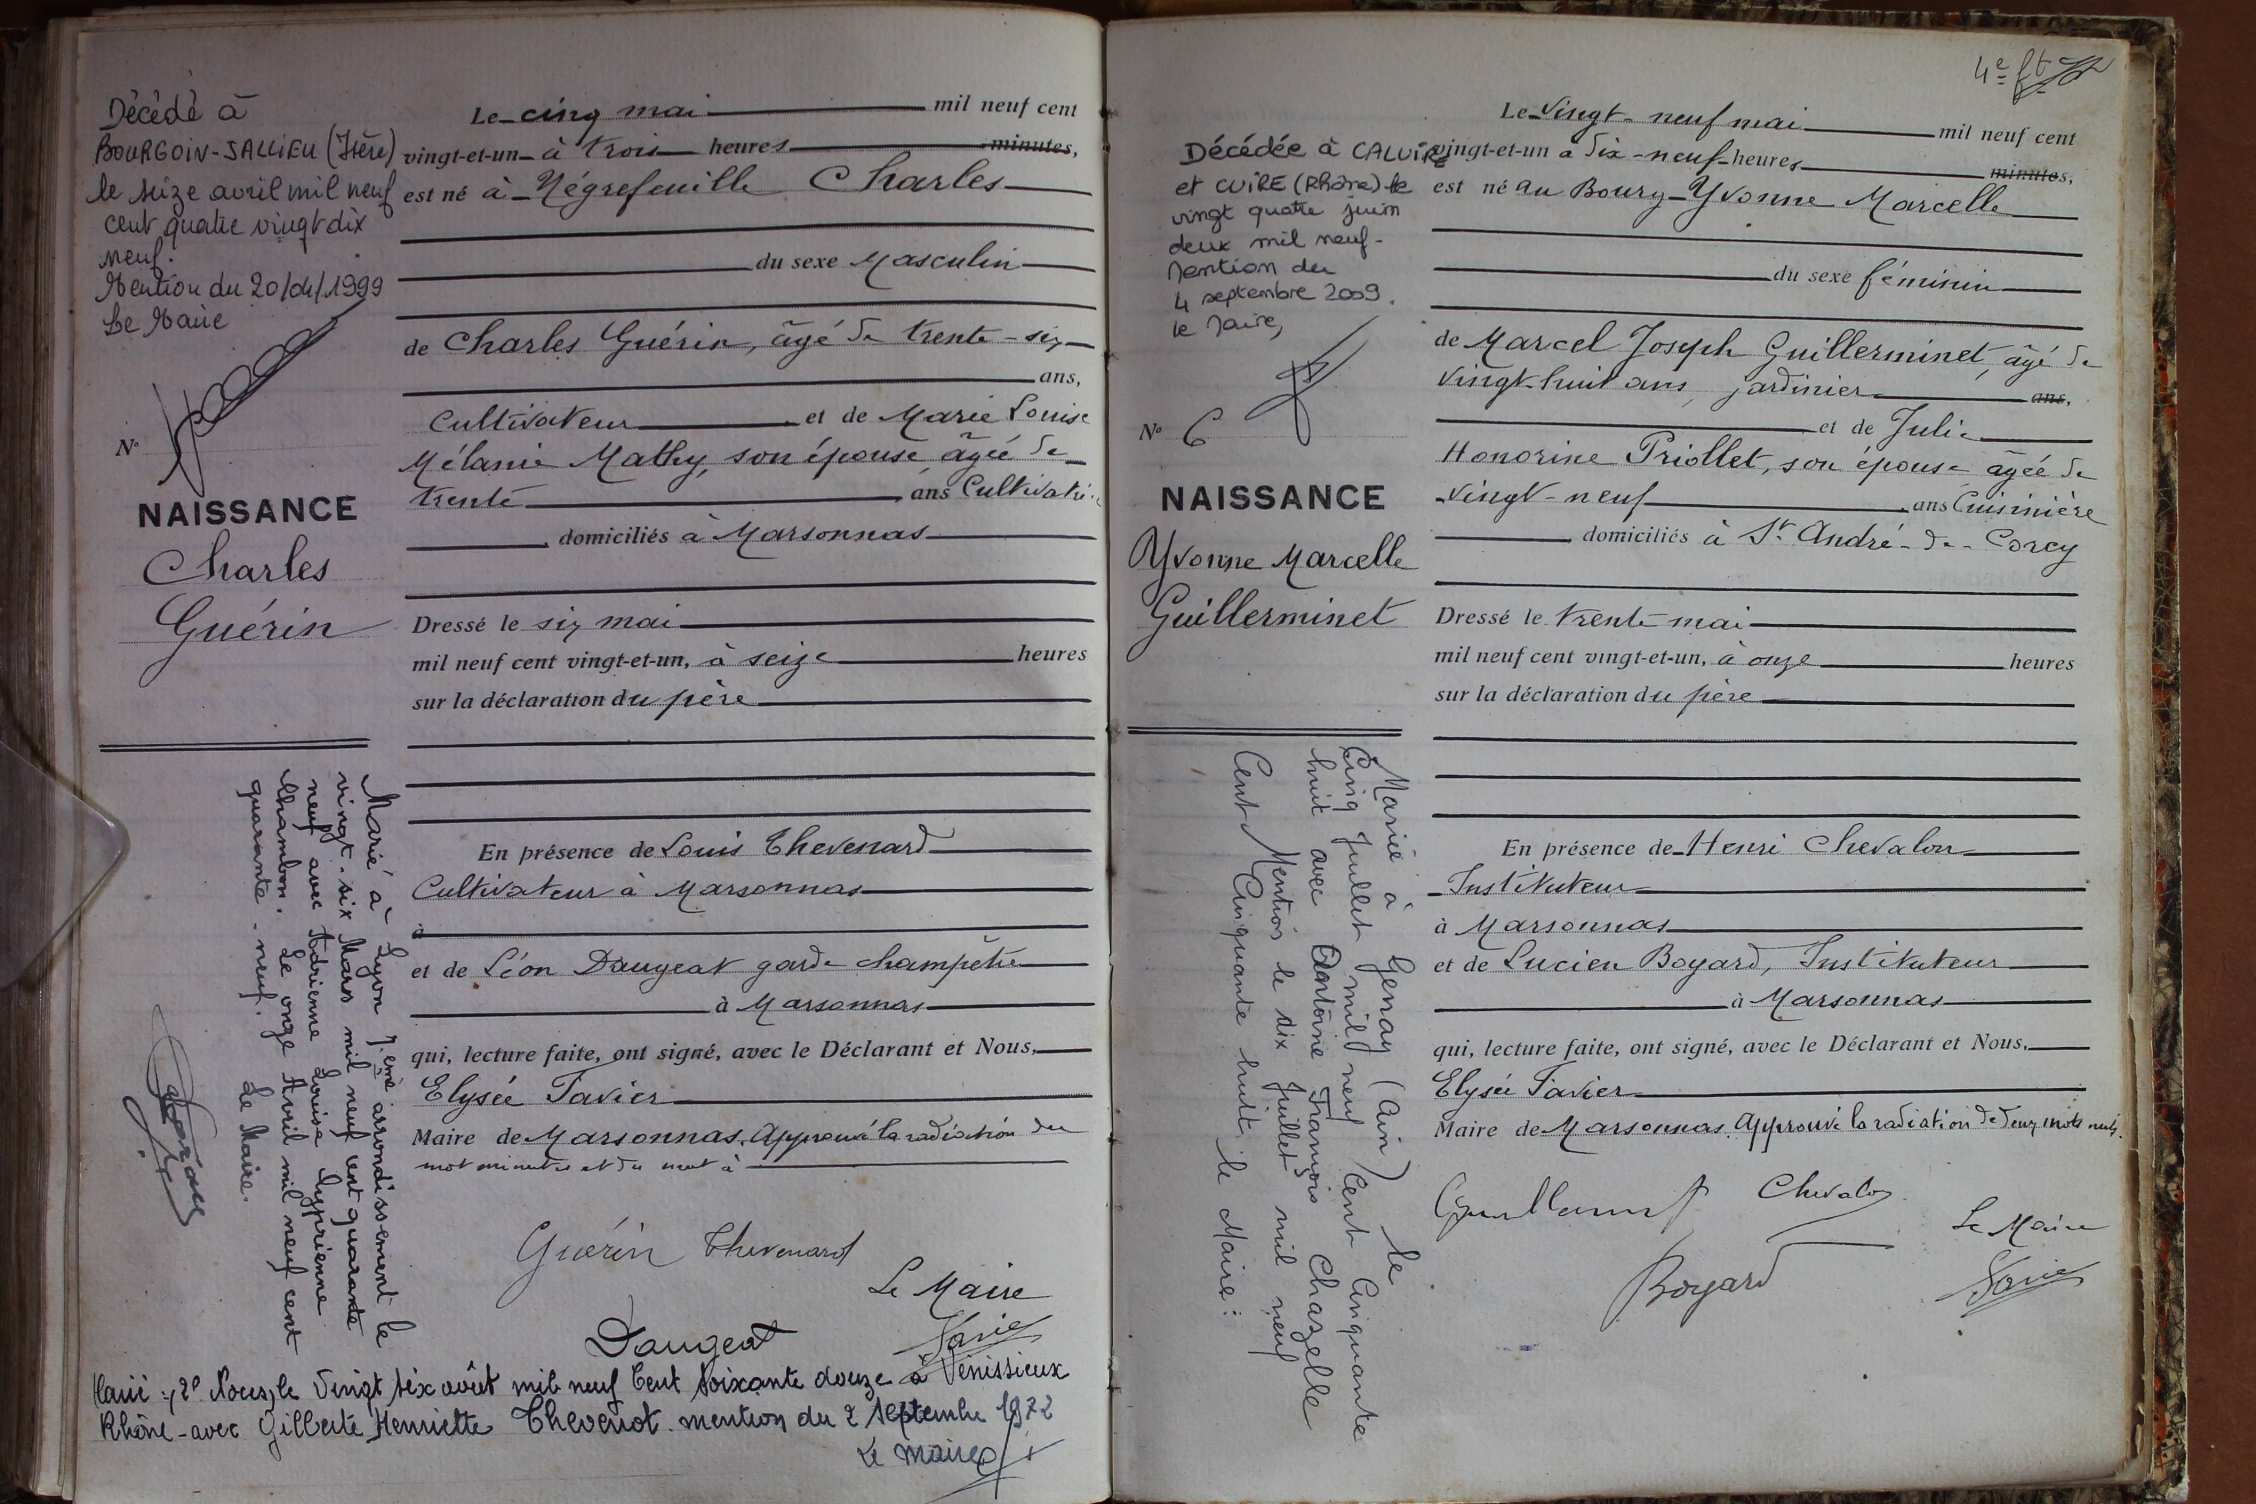 Décédé à
BOURGOIN-JALLIEU (Isère)
le seize avril mil neuf
cent quatre vingt dix
neuf.
Mention du 20/04/1999
Le Maire
No
NAISSANCE
Charles
Guérin
Marié à Lyon 7.eme arrondissement le
vingt-six Mars mil neuf cent quarante
neuf avec Adrienne Louise Cyprienne
Chambon. Le onze Avril mil neuf cent
quarante-neuf. Le Maire.
Le cinq mai mil neuf cent
vingt-et-un à trois heures minutes,
est né à Négrefeuille Charles
du sexe Masculin
de Charles Guérin, âgé de trente-six
ans,
Cultivateur et de Marie Louise
Mélanie Mathy, son épouse âgée de
trente ans Cultivatrice
domiciliés à Marsonnas
Dressé le six mai
mil neuf cent vingt-et-un, à seize heures
sur la déclaration du père
En présence de Louis Thevenard
Cultivateur à Marsonnas
à
et de Léon Daugeat garde champêtre
à Marsonnas
qui, lecture faite, ont signé, avec le Déclarant et Nous,
Elysée Favier
Maire de Marsonnas. Approuvé la radiation du
mot minutes et du mot à
Guérin Thevenard
Le Maire
Daugeat Favier
Marié en 2e Noces, le Vingt six août mil neuf Cent Soixante douze à Vénissieux
Rhône - avec Gilberte Henriette Thevenot. mention du 2 septembre 1972
Le maire
4e ft
Décédée à CALUIRE
et CUIRE (Rhône) le
vingt quatre juin
deux mil neuf-
Mention du
4 septembre 2009.
le Maire,
No 6
NAISSANCE
Yvonne Marcelle
Guillerminet
Mariée à Genay (Ain) le
Cinq Juillet mil neuf Cent Cinquante
huit avec Antoine François Chazelle
Mention le dix Juillet mil neuf
Cent Cinquante huit. le Maire:
Le Vingt-neuf mai mil neuf cent
vingt-et-un à dix-neuf heures minutes,
est né au Bourg Yvonne Marcelle
du sexe féminin
de Marcel Joseph Guillerminet, âgé de
vingt-huit ans, jardinier ans,
et de Julie
Honorine Priollet, son épouse âgée de
vingt-neuf ans Cuisinière
domiciliés à St André-de-Corcy
Dressé le trente mai
mil neuf cent vingt-et-un, à onze heures
sur la déclaration du père
En présence de Henri Chevalon
Instituteur
à Marsonnas
et de Lucien Boyard, Instituteur
à Marsonnas
qui, lecture faite, ont signé, avec le Déclarant et Nous,
Elysée Favier
Maire de Marsonnas. Approuvé la radiation de deux mots nuls.
Guillerminet Chevalon
Le Maire
Boyard Favier